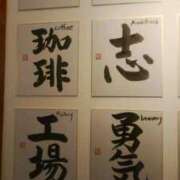 coffee
珈琲
志
工場
勇気
bravery